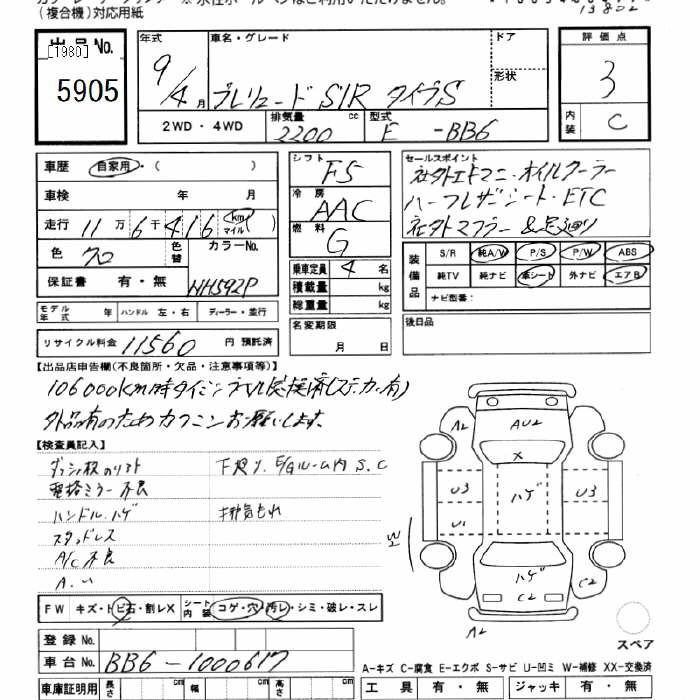 (複合機)対応用紙
13802
出品No.
[1980]
5905
年式
9/4月
車名・グレード
プレリュード SIR タイプS
ドア
形状
評価点
3
内装
C
2WD・4WD
排気量
2200
cc
型式
E -BB6
車歴
自家用・( )
車検 年 月
走行 11万6千416 km マイル
色 クロ
色替
カラーNo.
NH592P
保証書 有・無
モデル年式 年
ハンドル 左・右
ディーラー・並行
リサイクル料金 11560 円 預託済
シフト F5
冷房 AAC
燃料 G
乗車定員 4 名
積載量 kg
総重量 kg
名変期限
月 日
セールスポイント
社外エキマニ・オイルクーラー
ハーフレザーシート・ETC
社外マフラー &足廻り
装備品
S/R 純A/V P/S P/W ABS
純TV 純ナビ 革シート 外ナビ エアB
ナビ型番:
後日品
【出品店申告欄(不良箇所・欠品・注意事項等)】
106000km時タイミングベルト交換済(ステッカー有)
外品有のためカクニンお願いします。
【検査員記入】
ダッシュ板のリフト
電格ミラー不良
ハンドル ハゲ
スタッドレス
A/C 不良
下廻り、E/Gルーム内 S.C
排気もれ
FW キズ・トビ石・割レX
シート内装 コゲ・穴・汚レ・シミ・破レ・スレ
登録No.
車台No. BB6-1000617
車庫証明用 長さ cm 幅 cm 高さ cm
A2
AU2
X
U3
ハゲ
U3
U1
ハゲ
C2
C2
A2
スペア
A-キズ C-腐食 E-エクボ S-サビ U-凹ミ W-補修 XX-交換済
工具 有・無 ジャッキ 有・無